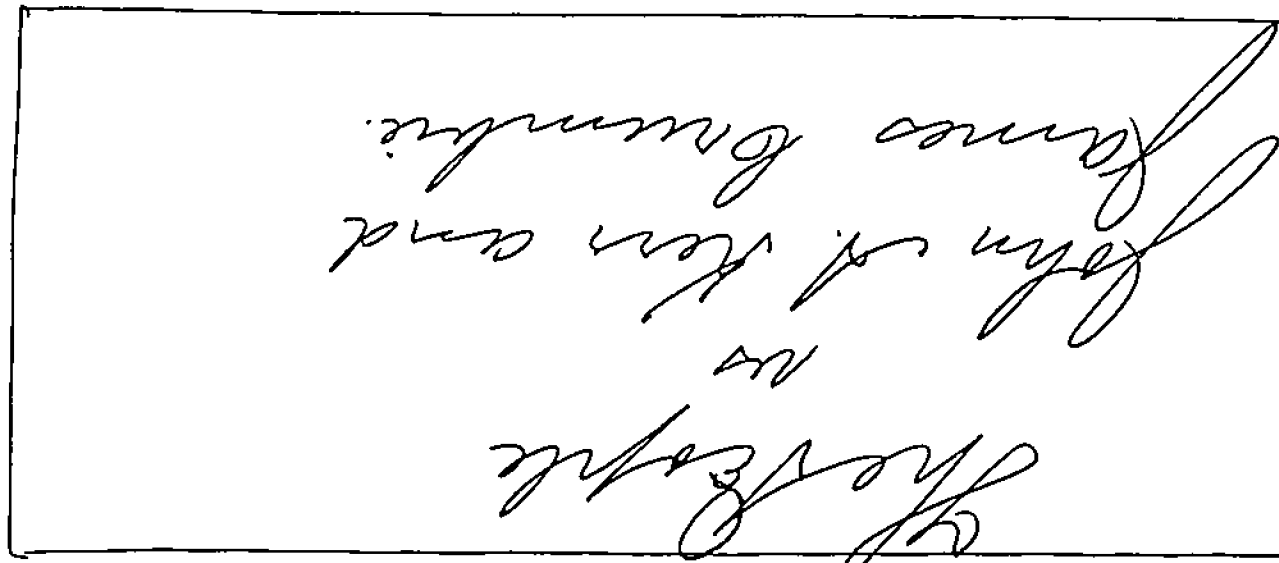 The People
vs
John A. Kerr and
James Crumbie.